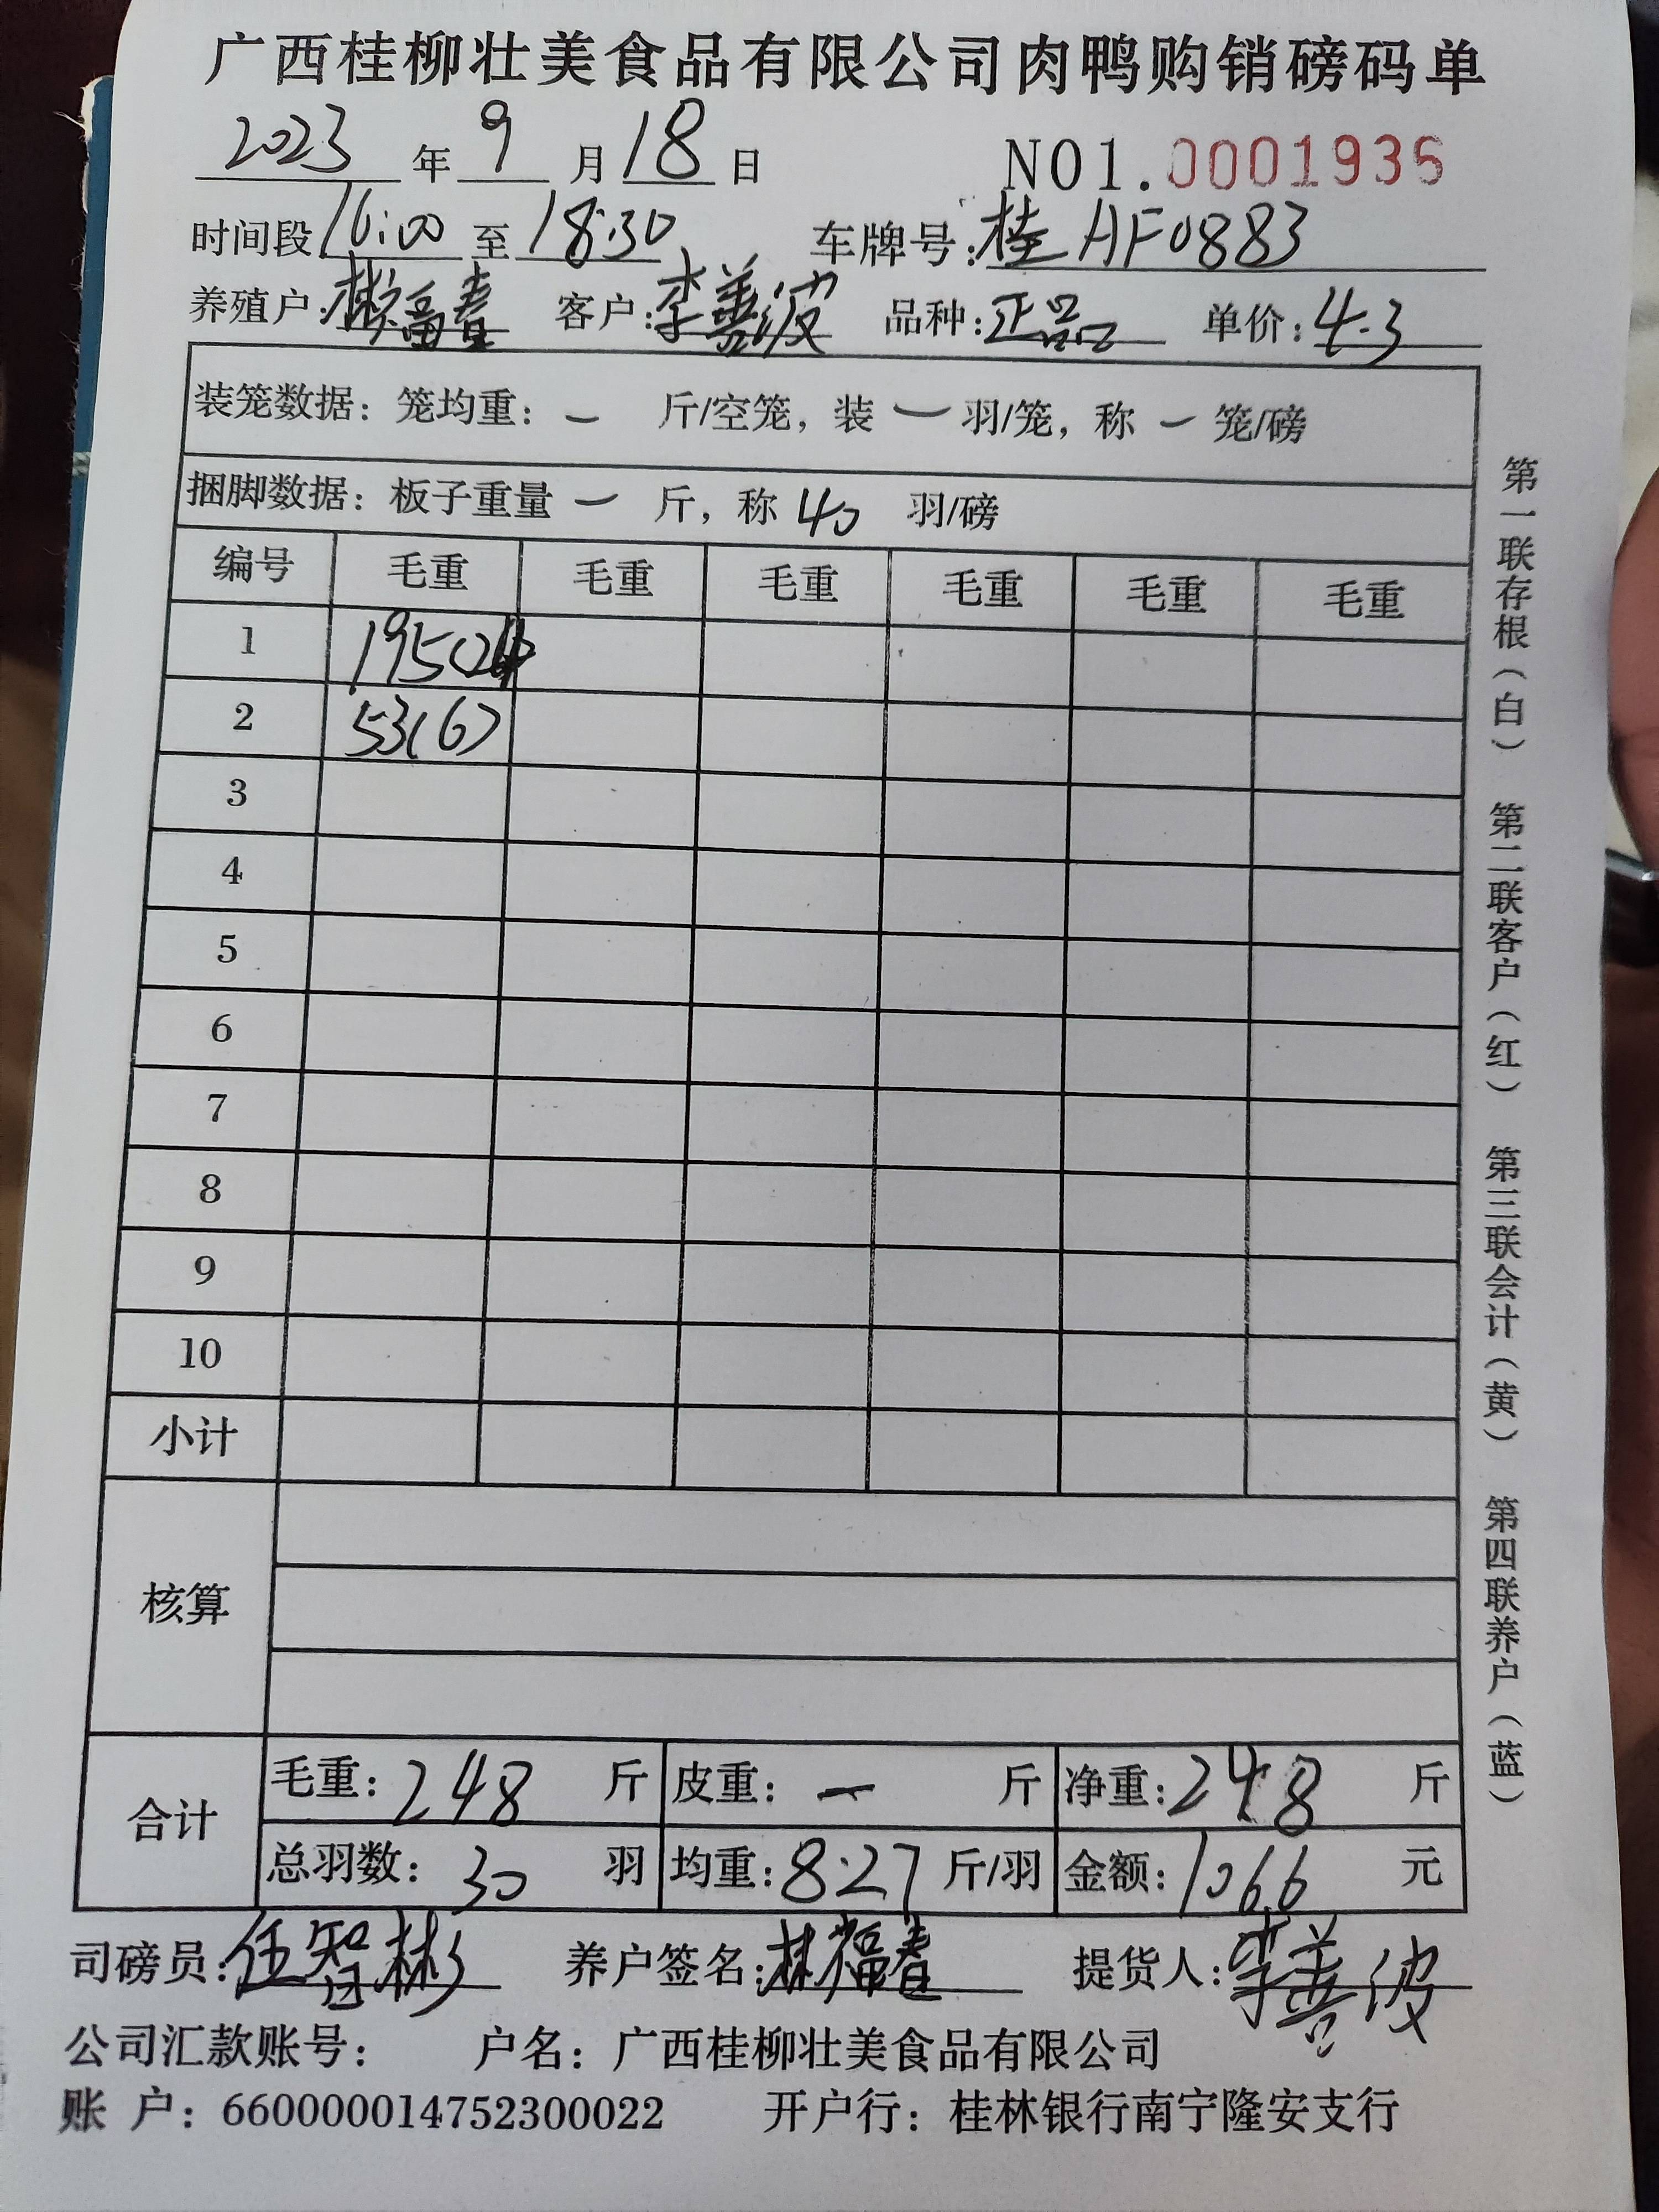 广西桂柳壮美食品有限公司肉鸭购销磅码单
2023 年 9 月 18 日 NO1.0001936
时间段 16:00 至 18:30 车牌号:桂AF0883
养殖户:林福春 客户:李善波 品种:正品 单价:4.3
装笼数据:笼均重:一 斤/空笼,装 一 羽/笼,称 一 笼/磅
捆脚数据:板子重量 一 斤,称 40 羽/磅
编号 毛重 毛重 毛重 毛重 毛重 毛重
1 195
2 53(6)
3
4
5
6
7
8
9
10
小计
核算
合计
毛重:248 斤 皮重:一 斤 净重:248 斤
总羽数:30 羽 均重:8.27 斤/羽 金额:1066 元
司磅员:伍智彬 养户签名:林福春 提货人:李善波
公司汇款账号: 户名:广西桂柳壮美食品有限公司
账 户:660000014752300022 开户行:桂林银行南宁隆安支行
第一联存根(白) 第二联客户(红) 第三联会计(黄) 第四联养户(蓝)